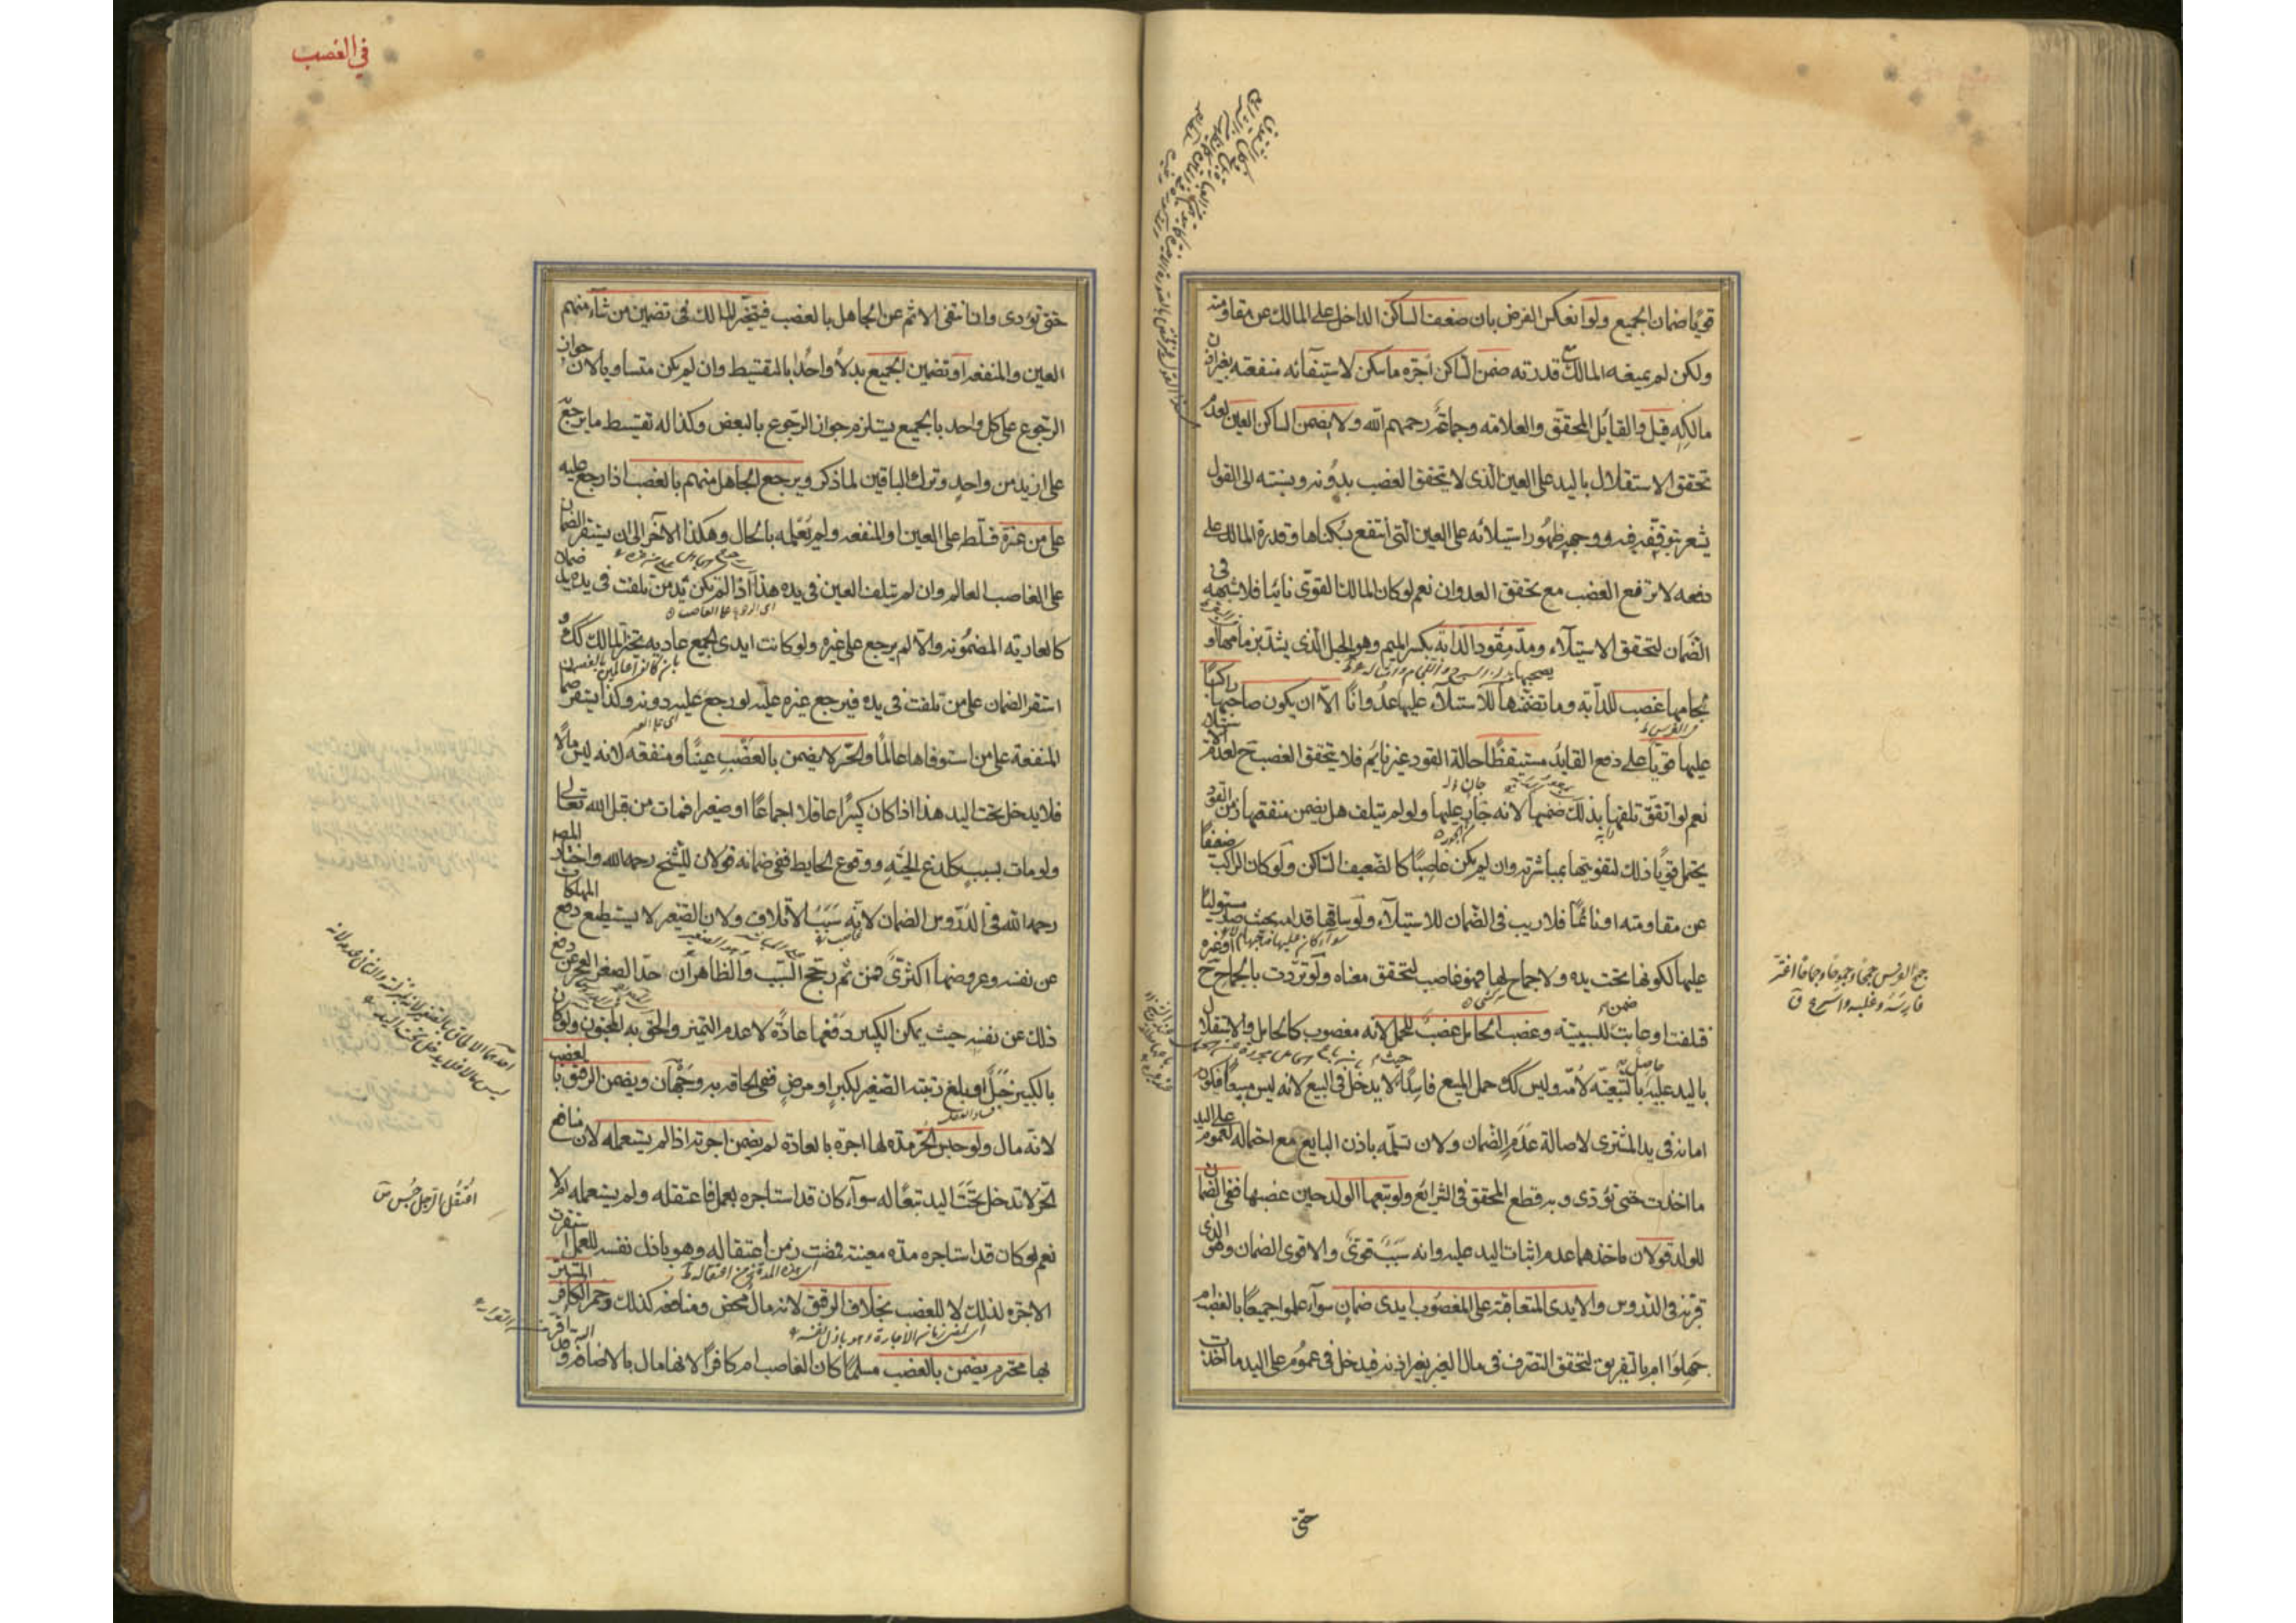 قويا ضمان الجميع ولو انعكس الفرض بان ضعف الساكن الداخل على المالك عن مقاومته
ولكن لم يمنعه المالك مع قدرته ضمن الساكن اجرة ما سكن لاستيفائه منفعته بغير اذن
مالكه قيل والقائل المحقق والعلامه وجماعة رحمهم الله ولا يضمن الساكن العين لعدم
تحقق الاستقلال باليد على العين الذى لا يتحقق الغصب بدونه ونسبته الى القول
يشعر بتوقفه فيه ووجهه ظهور استيلائه على العين التى انتفع بسكناها وقدرة المالك على
دفعه لا ترفع الغصب مع تحقق العدوان نعم لو كان المالك القوى نائيا فلا شبهه فى
الضمان لتحقق الاستيلاء ومد مقود الدابه بكسر الميم وهو الحبل الذى يشد بزمامها او
لجامها غصب للدابه وما تضمنها للاستيلاء عليها عدوانا الا ان يكون صاحبها راكبا
عليها قويا على دفع القايد مستيقظا حالة القود غير نايم فلا يتحقق الغصب ح لعدم الاستقلال
نعم لو اتفق تلفها بذلك ضمنها لانه جان عليها ولو لم يتلف هل يضمن منفعتها زمن القود
يحتمل قويا ذلك لتفويتها بمباشرته وان لم يكن غاصبا كالضعيف الساكن ولو كان الراكب ضعيفا
عن مقاومته او نائما فلا ريب فى الضمان للاستيلاء ولو ساقها قدامه بحيث صار مستوليا
عليها لكونها تحت يده ولا جماح لها فهو غاصب لتحقق معناه ولو تردت بالجماح ح
فتلفت او عابت للسببيه وغصب الحامل غصب للحمل لانه مغصوب كالحامل والاستقلال
باليد عليه بالتبعيه لامه وليس كك حمل المبيع فاسدا لا يدخل فى البيع لانه ليس مبيعا فيكون
امانه فى يد المشترى لاصالة عدم الضمان ولان تسلمه باذن البايع مع احتماله لعموم على اليد
ما اخذت حتى تؤدى وبه قطع المحقق فى الشرائع ولو تبعها الولد حين غصبها ففى الضمان
للولد قولان ماخذهما عدم اثبات اليد عليه وانه سبب قوى والاقوى الضمان وهو الذى
قربه فى الدروس والايدى المتعاقبه على المغصوب ايدى ضمان سواء علموا جميعا بالغصب ام
جهلوا ام بالتفريق لتحقق التصرف فى مال الغير بغير اذنه فيدخل فى عموم على اليد ما اخذت
حتى
فى الغصب
حتى تؤدى وان انتفى الاثم عن الجاهل بالغصب فيتخير المالك فى تضمين من شاء منهم
العين والمنفعه او تضمين الجميع بدلا واحدا بالتقسيط وان لم يكن متساويا لان جواز
الرجوع على كل واحد بالجميع يستلزم جواز الرجوع بالبعض وكذا له تقسيط ما يرجع به
على ازيد من واحد وترك الباقين لما ذكر ويرجع الجاهل منهم بالغصب اذا رجع عليه
على من غره فسلطه على العين او المنفعه ولم يعلمه بالحال وهكذا الاخر الى ان يستقر الضمان
على الغاصب العالم وان لم يتلف العين فى يده هذا اذا لم تكن يد من تلفت فى يده يد ضمان
كالعاريه المضمونه والا لم يرجع على غيره ولو كانت ايدى الجميع عاديه تخير المالك كك و
استقر الضمان على من تلفت فى يده فيرجع غيره عليه لو رجع عليه دونه وكذا يستقر ضمان
المنفعة على من استوفاها عالما والحر لا يضمن بالغصب عينا ومنفعه لانه ليس مالا
فلا يدخل تحت اليد هذا اذا كان كبيرا عاقلا اجماعا او صغيرا فمات من قبل الله تعالى
ولو مات بسبب كلدغ الحيه ووقوع الحايط ففى ضمانه قولان للشيخ رحمه الله واختار المصر
رحمه الله فى الدروس الضمان لانه سبب الاتلاف ولان الصغير لا يستطيع دفع المهلكات
عن نفسه وعروضها اكثرى فمن ثم رجح السبب والظاهر ان حد الصغير العجز عن دفع
ذلك عن نفسه حيث يمكن الكبير دفعها عادة لا عدم التميز والحق به المجنون ولو كان
بالكبير خبل او بلغ رتبته الصغير لكبر او مرض ففى الحاقه به وجهان ويضمن الرقيق بالغصب
لانه مال ولو حبس الحر مده لها اجرة بالعادة لم يضمن اجرته اذا لم يستعمله لان منافع
الحر لا تدخل تحت اليد تبعا له سواء كان قد استاجره لعمل فاعتقله ولم يستعمله ام لا
نعم لو كان قد استاجره مده معينه فمضت زمن اعتقاله وهو باذل نفسه للعمل استقرت
الاجره لذلك لا للغصب بخلاف الرقيق لانه مال محض ومنافعه كذلك وخمر الكافر المستتر
بها محترم يضمن بالغصب مسلما كان الغاصب ام كافرا لانها مال بالاضافه اليه وقد اقر
اعتقل الرجل حبس ق